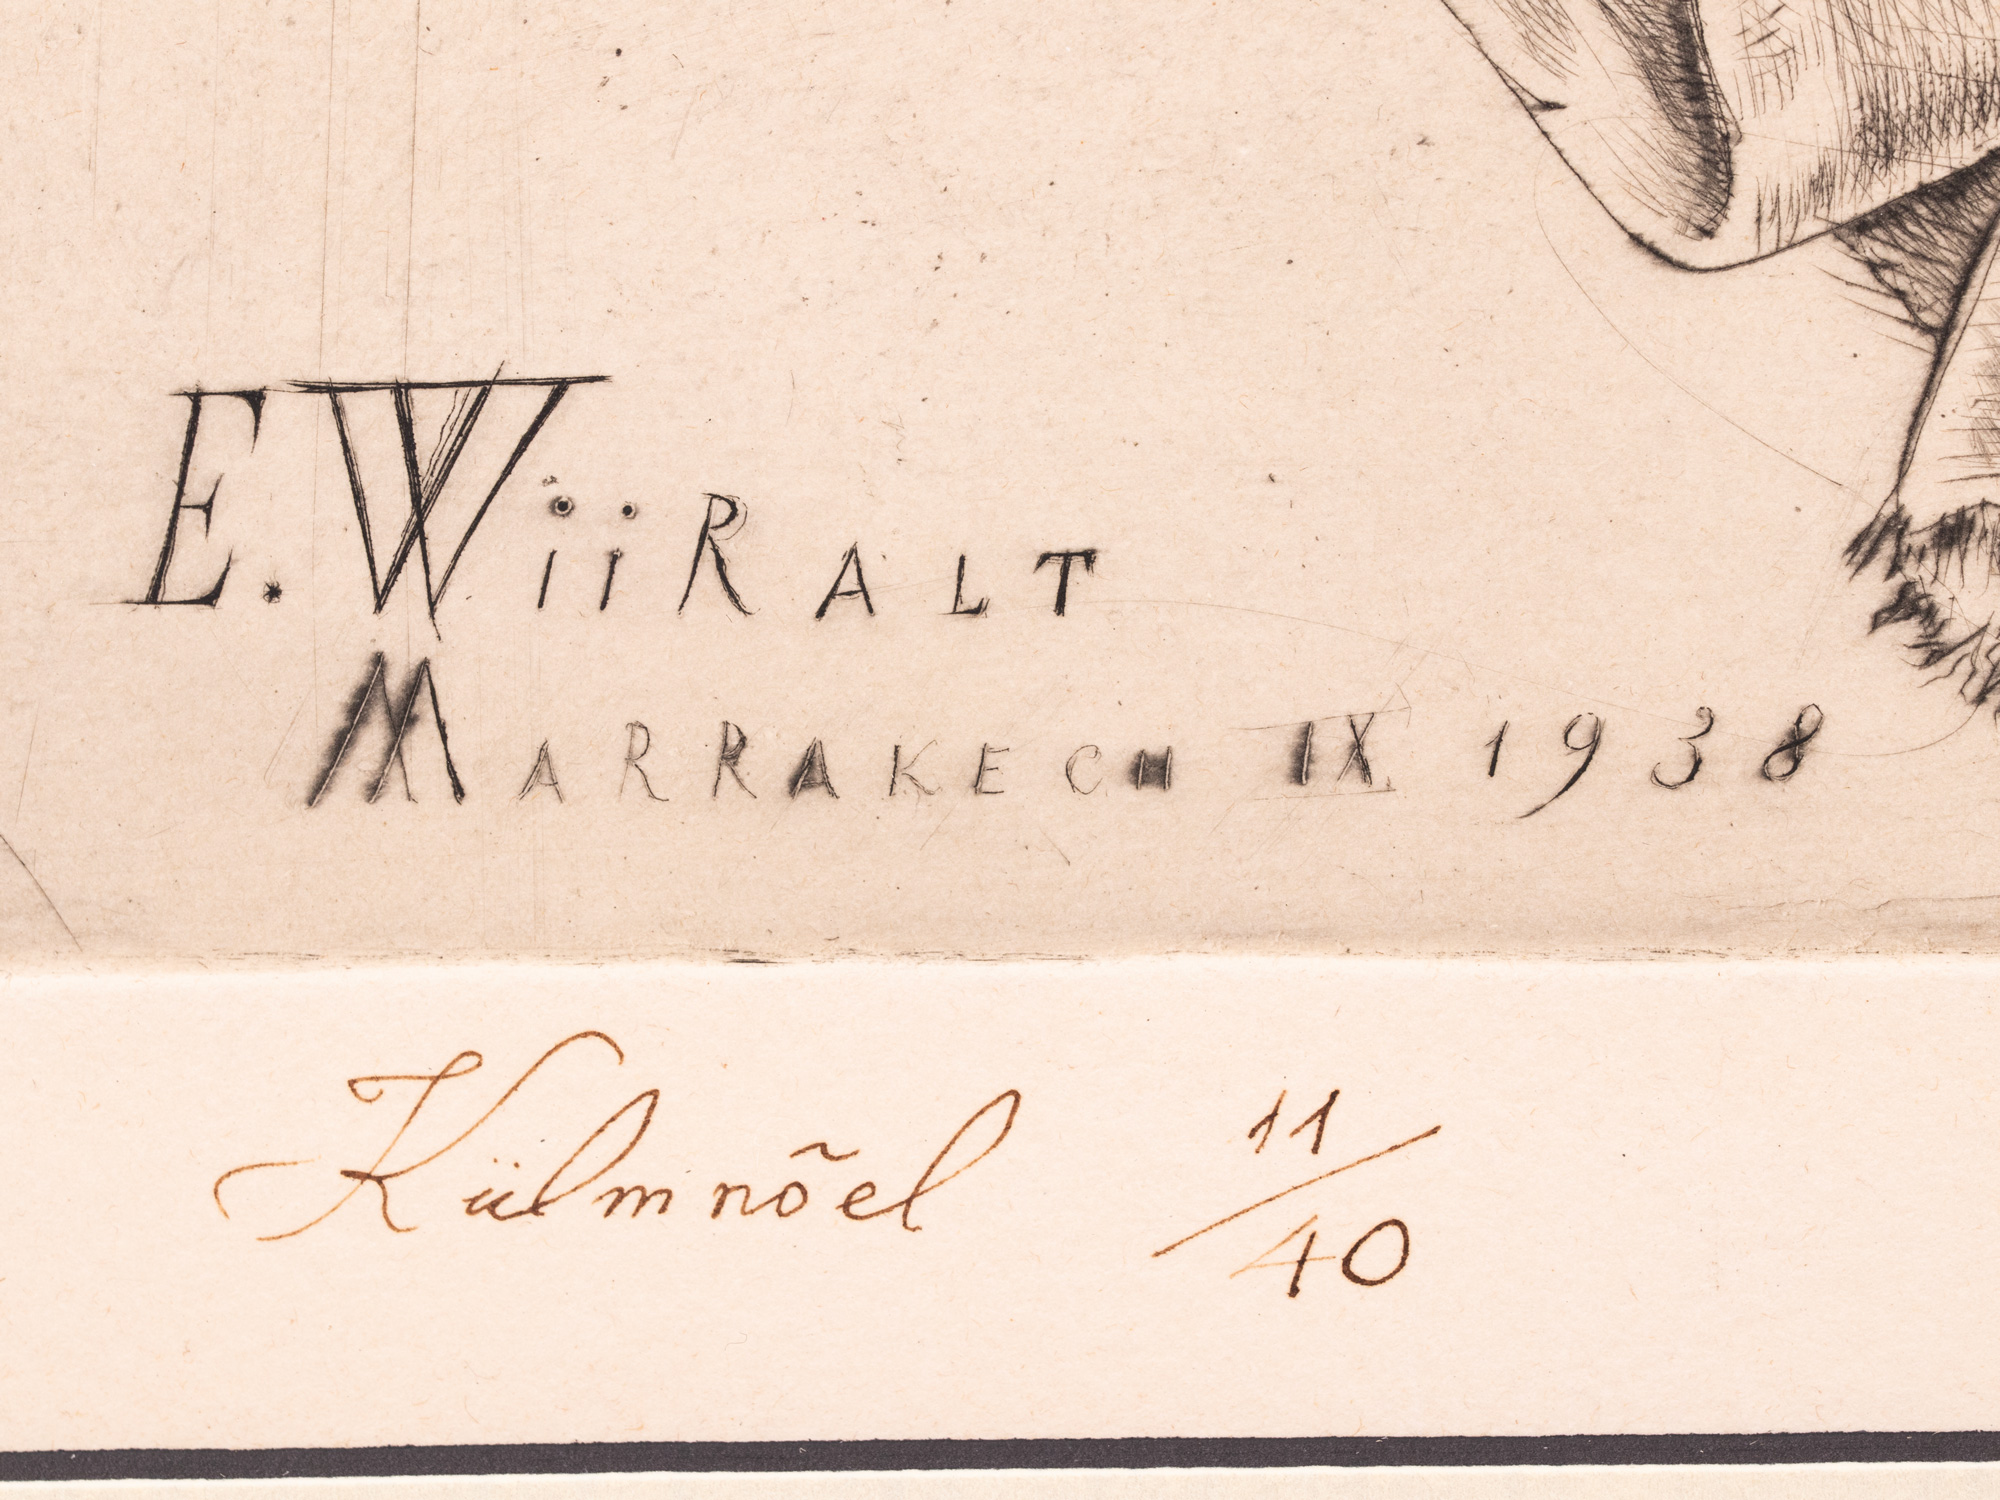 E. WiiRALT
MARRAKECH IX 1938
Külmnõel 11/40